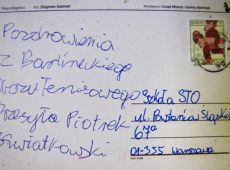 Fot. Zbigniew Galiński
Wydawca: Urząd Miasta i Gminy Barlinek
Pozdrowienia
z Barlineckiego
obozu tenisowego
przesyła Piotrek
Kwiatkowski
Szkoła STO
ul. Powstańców Śląskich
67a
01-355 Warszawa